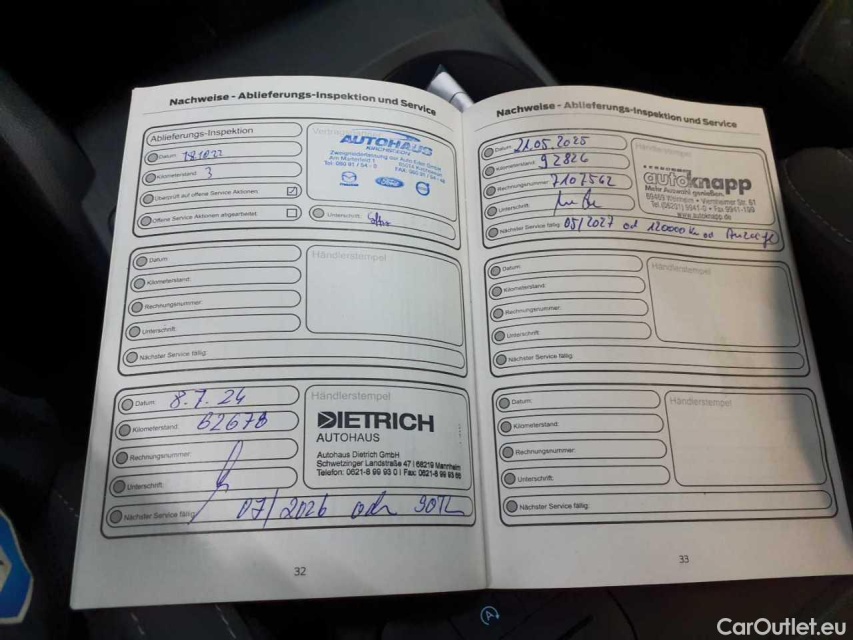 Nachweise - Ablieferungs-Inspektion und Service
Ablieferungs-Inspektion
Datum:
Kilometerstand: 3
Überprüft auf offene Service Aktionen:
Offene Service Aktionen abgearbeitet:
AUTOHAUS
KIRCHSEEON
Ford
Unterschrift:
Datum:
Kilometerstand:
Rechnungsnummer:
Unterschrift:
Nächster Service fällig:
Händlerstempel
Datum: 8.7.24
Kilometerstand: 62678
Rechnungsnummer:
Unterschrift:
Nächster Service fällig: 07/2026 odr 90TK
Händlerstempel
DIETRICH
AUTOHAUS
Autohaus Dietrich GmbH
Schwetzinger Landstraße 47 | 68219 Mannheim
Telefon: 0621-8 99 93 0 | Fax: 0621-8 99 93 66
32
Nachweise - Ablieferungs-Inspektion und Service
Datum: 21.05.2025
Kilometerstand: 92826
Rechnungsnummer: 7107562
Unterschrift:
Nächster Service fällig: 05/2027 od 120000 km od Anzeige
Händlerstempel
autoknapp
Mehr Auswahl genießen.
69469 Weinheim • Viernheimer Str. 61
Tel. (06201) 9941-0 • Fax 9941-199
www.autoknapp.de
Datum:
Kilometerstand:
Rechnungsnummer:
Unterschrift:
Nächster Service fällig:
Händlerstempel
Datum:
Kilometerstand:
Rechnungsnummer:
Unterschrift:
Nächster Service fällig:
Händlerstempel
33
CarOutlet.eu